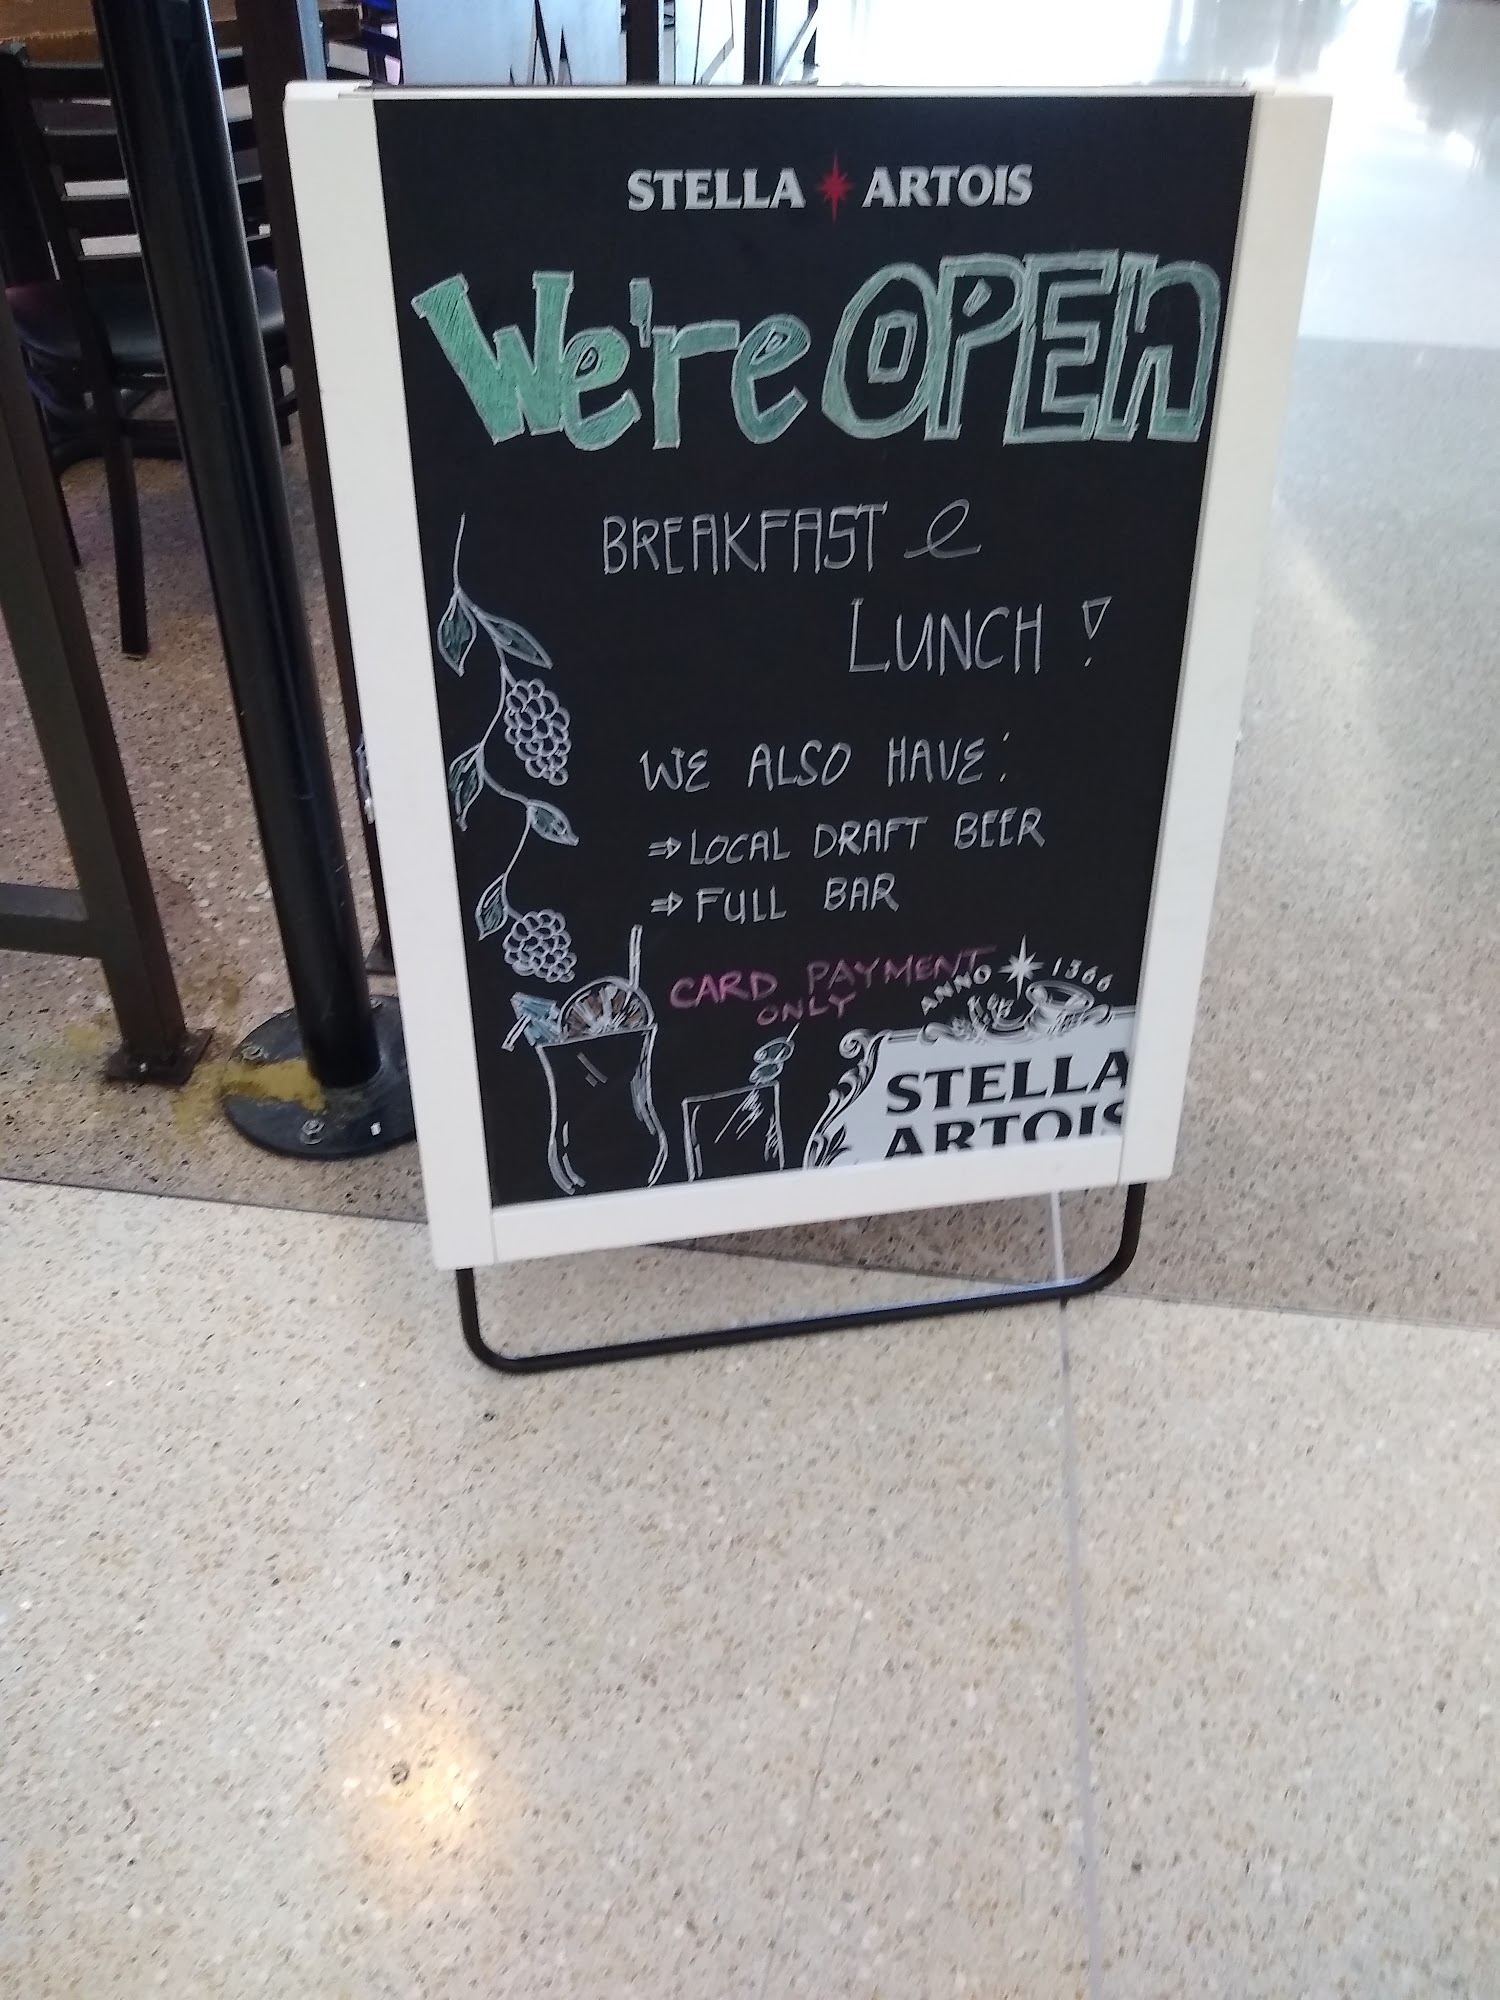 STELLA ARTOIS
We're OPEN
BREAKFAST &
LUNCH !
WE ALSO HAVE:
⇒ LOCAL DRAFT BEER
⇒ FULL BAR
CARD PAYMENT
ONLY
ANNO 1366
STELLA
ARTOIS